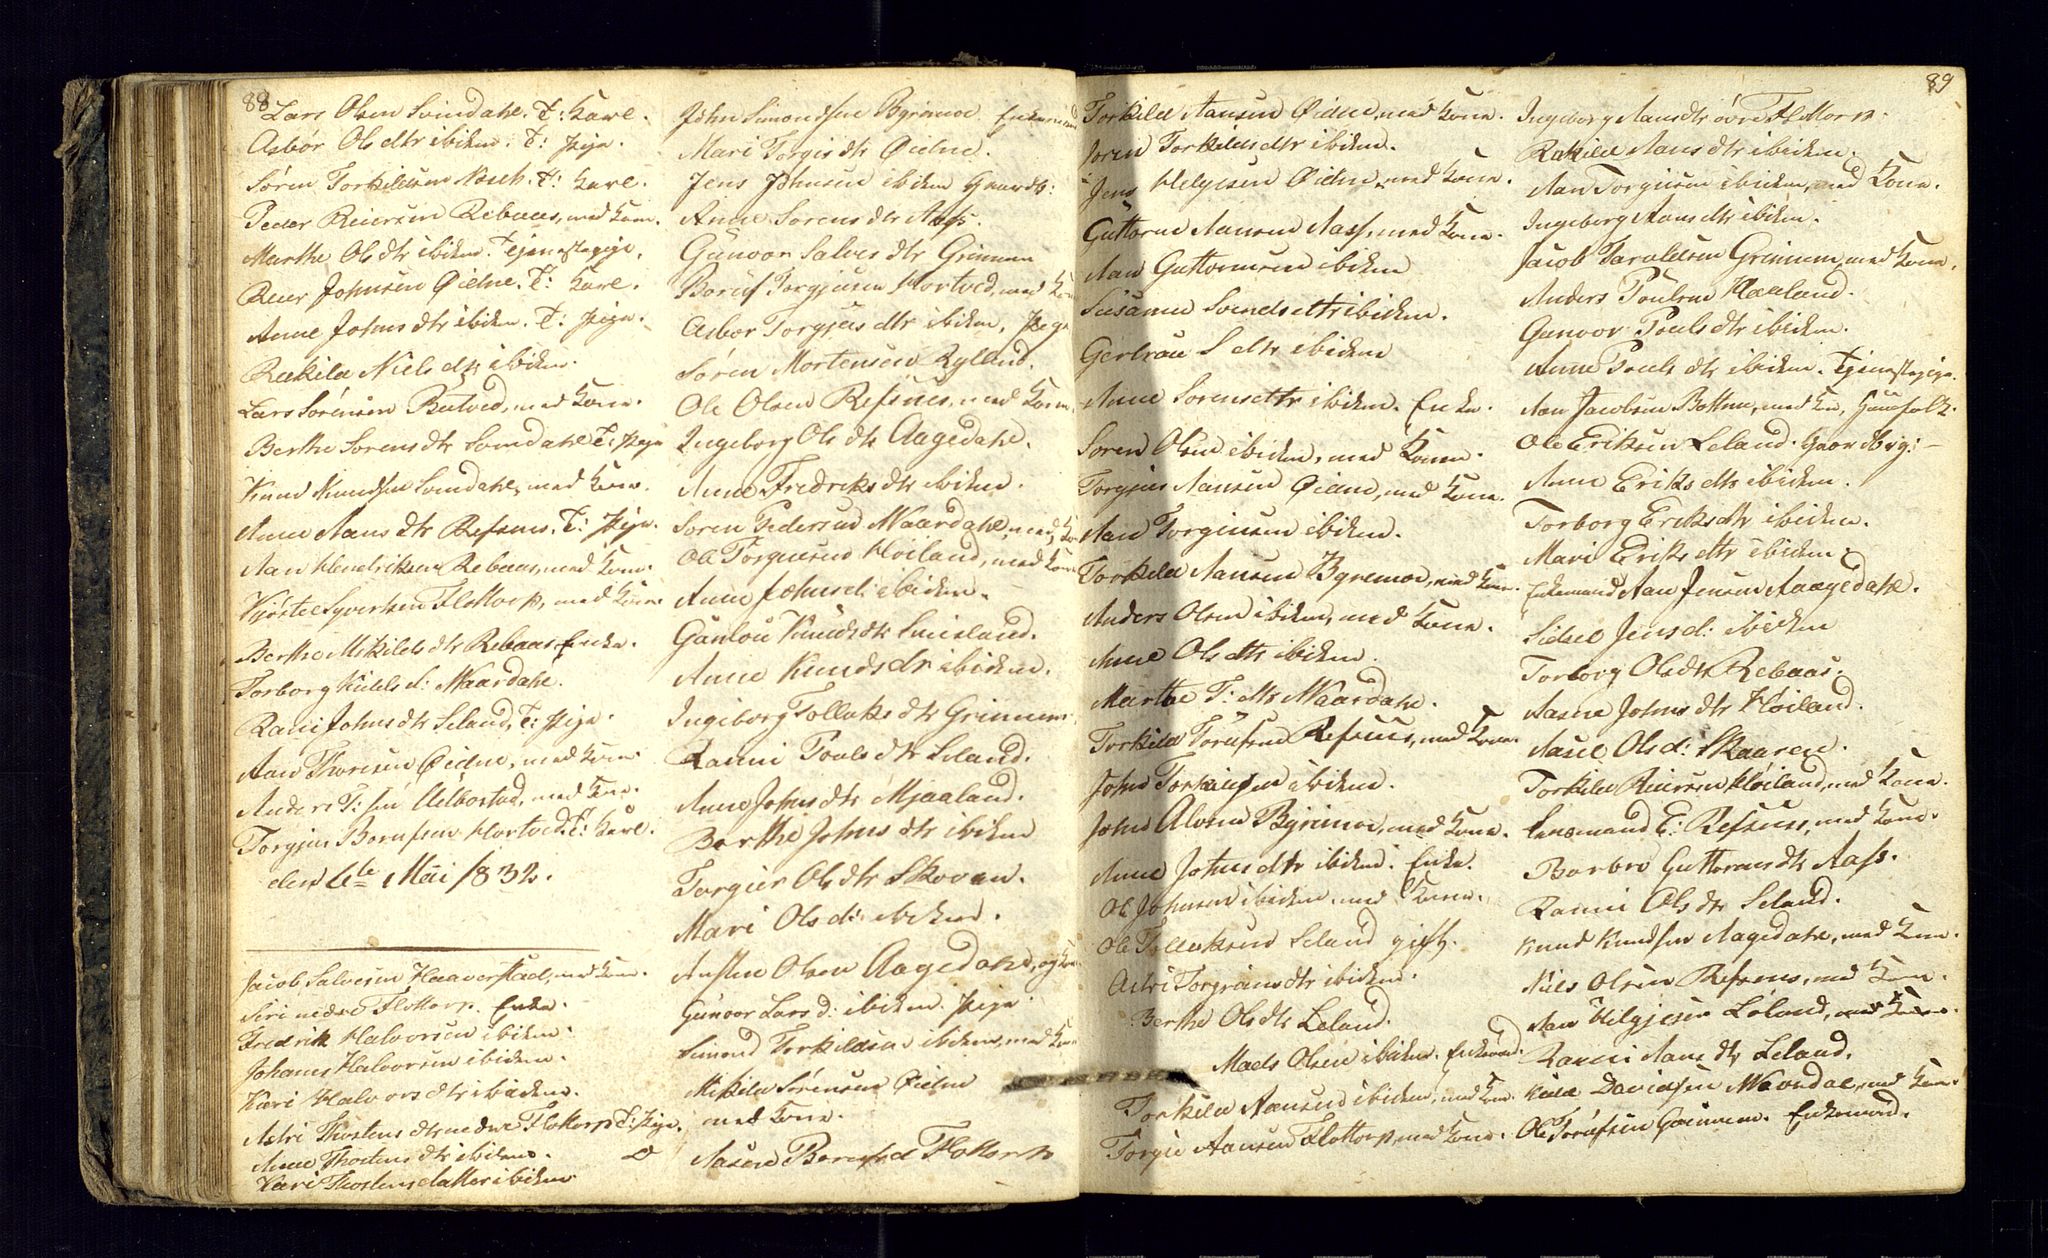 88
Lars Olsen Svindahl. T: Karl.
Asbør Olsdtr ibidem. T: Pige.
Søren Torkildsen Nosch. T: Karl.
Peder Reiersen Rebaas, med Kone.
Marthe Olsdtr ibidem. Tjenestepige.
Reier Johnsen Øidne. T: Karl.
Anne Johnsdtr ibidem. T: Pige.
Rakild Nielsdtr ibidem.
Lars Sørensen Butved, med Kone.
Berthe Sørensdtr Svindahl T: Pige
Knud Knudsen Svindahl, med Kone.
Anne Aansdtr Refsnes. T: Pige.
Aan Hendriksen Rebaas, med Kone.
Kjøstel Syvertsen Flottorp, med Kone
Berthe Mikilsdtr Rebaas Enke.
Torborg Kittelsd: Maardahl.
Ranni Johnsdtr Seland, T: Pige.
Aan Thorisen Øidne, med Kone
Anders T: sen Ualbostad, med Kone.
Torgjus Borufsen Hortved. T: Karl.
den 6te Mai 1832.
Jacob Salvesen Haaverstad, med Kone.
Siri nedre Flottorp. Enke.
Fredrik Halvorsen ibidem.
Johanes Halvorsen ibidem.
Kari Halvorsdtr ibidem.
Astri Thostensdtr nedre Flottorp T: Pige.
Anne Thostensdtr ibidem.
Kari Thostensdatter ibidem
John Simondsen Byremoe Enkemand
Mari Torgisdtr Øidne.
Jens Johnsen ibidem Gaardb:
Anne Sørensdtr Aass.
Gunvor Salvesdtr Grimem
Boruf Torgjusen Hortved, med Kone
Asbør Torgjusdtr ibidem, Pige
Søren Mortensen Rylland.
Ole Olsen Refsnes, med Kone.
Ingeborg Olsdtr Aagedahl.
Anne Fredriksdtr ibidem.
Søren Pedersen Maardahl, med Ko
Ole Torgiusen Høiland, med Kone
Anne Johnsd: ibidem.
Gunlou Knudsdtr Smisland.
Anne Knudsdtr ibidem.
Ingeborg Tollaksdtr Grimem
Ranni Poulsdtr Seland.
Anne Johnsdtr Mjaaland.
Berthe Johnsdtr ibidem
Torgier Olsdtr Skoven.
Mari Olsd: ibidem.
Austen Olsen Aagedahl, og Kone
Gunvor Larsd: ibidem. Pige
Simond Torkildsen ibidem, med Kone
Mikild Sørensen Øidne
med Kone.
Aasne Borufsd Flottorp
89
Torkild Aansen Øidne, med Kone.
Joren Torkildsdtr ibidem.
Jens Helgesen Øidne, med Kone.
Guttorm Aansen Aass, med Kone.
Aan Guttormsen ibidem
Susanne Svendsdtr ibidem.
Gertrou S dtr ibidem
Anne Sørensdtr ibidem. Enke.
Søren Olsen ibidem, med Kone.
Torgjus Aansen Øidne, med Kone.
Aan Torgiusen ibidem.
Torkild Aansen Byremoe, med Kone.
Anders Olsen ibidem, med Kone.
Anne Olsdtr ibidem.
Marthe T: dtr Maardahl.
Torkild Torufsen Refsnes, med Kone.
John Torkildsen ibidem.
John Alvsen Byremoe, med Kone.
Anne Johnsdtr ibidem. Enke.
Ole Johnsen ibidem med Kone.
Ole Tollaksen Seland gift.
Astri Torgrimsdtr ibidem.
Berthe Olsdtr Leland.
Mads Olsen ibidem. Enkemd.
Torkild Aansen ibidem, med Kone.
Torgie Aansen Flottorp, med Kone.
Ingeborg Aansdtr øvre Flottorp.
Rakild Aansdtr ibidem.
Aan Torgiusen ibidem, med Kone.
Ingeborg Aansdtr ibidem.
Jacob Taraldsen Grimem, med Kone.
Anders Poulsen Haaland.
Gunvor Poulsdtr ibidem.
Anne Poulsdtr ibidem. Tjenestepige.
Aan Jacobsen Bottne, med Kone, Huusfolk.
Ole Eriksen Leland. Gaardbrg:
Anne Eriksdtr ibidem.
Torborg Eriksdtr ibidem.
Mari Eriksdtr ibidem.
Enkemand Aan Jensen Aaagedahl.
Sidsel Jensd: ibidem
Torborg Olsdtr Rebaas.
Aasne Johnsdtr Høiland.
Aase Olsd: Skaaren.
Torkild Reiersen Høiland, med Kone.
Lensmand E: Refsnes, med Kone.
Barbro Guttormsdtr Aass.
Ranni Olsdtr Seland.
Knud Knudsen Aagedahl, med Kone.
Niels Olsen Refsnes, med Kone.
Aan Helgjesen Leland, med Kone.
Ranni Aansdtr Leland.
Davidsen Maardal, med Kone.
Ole Torufsen Grimem. Enkemand.